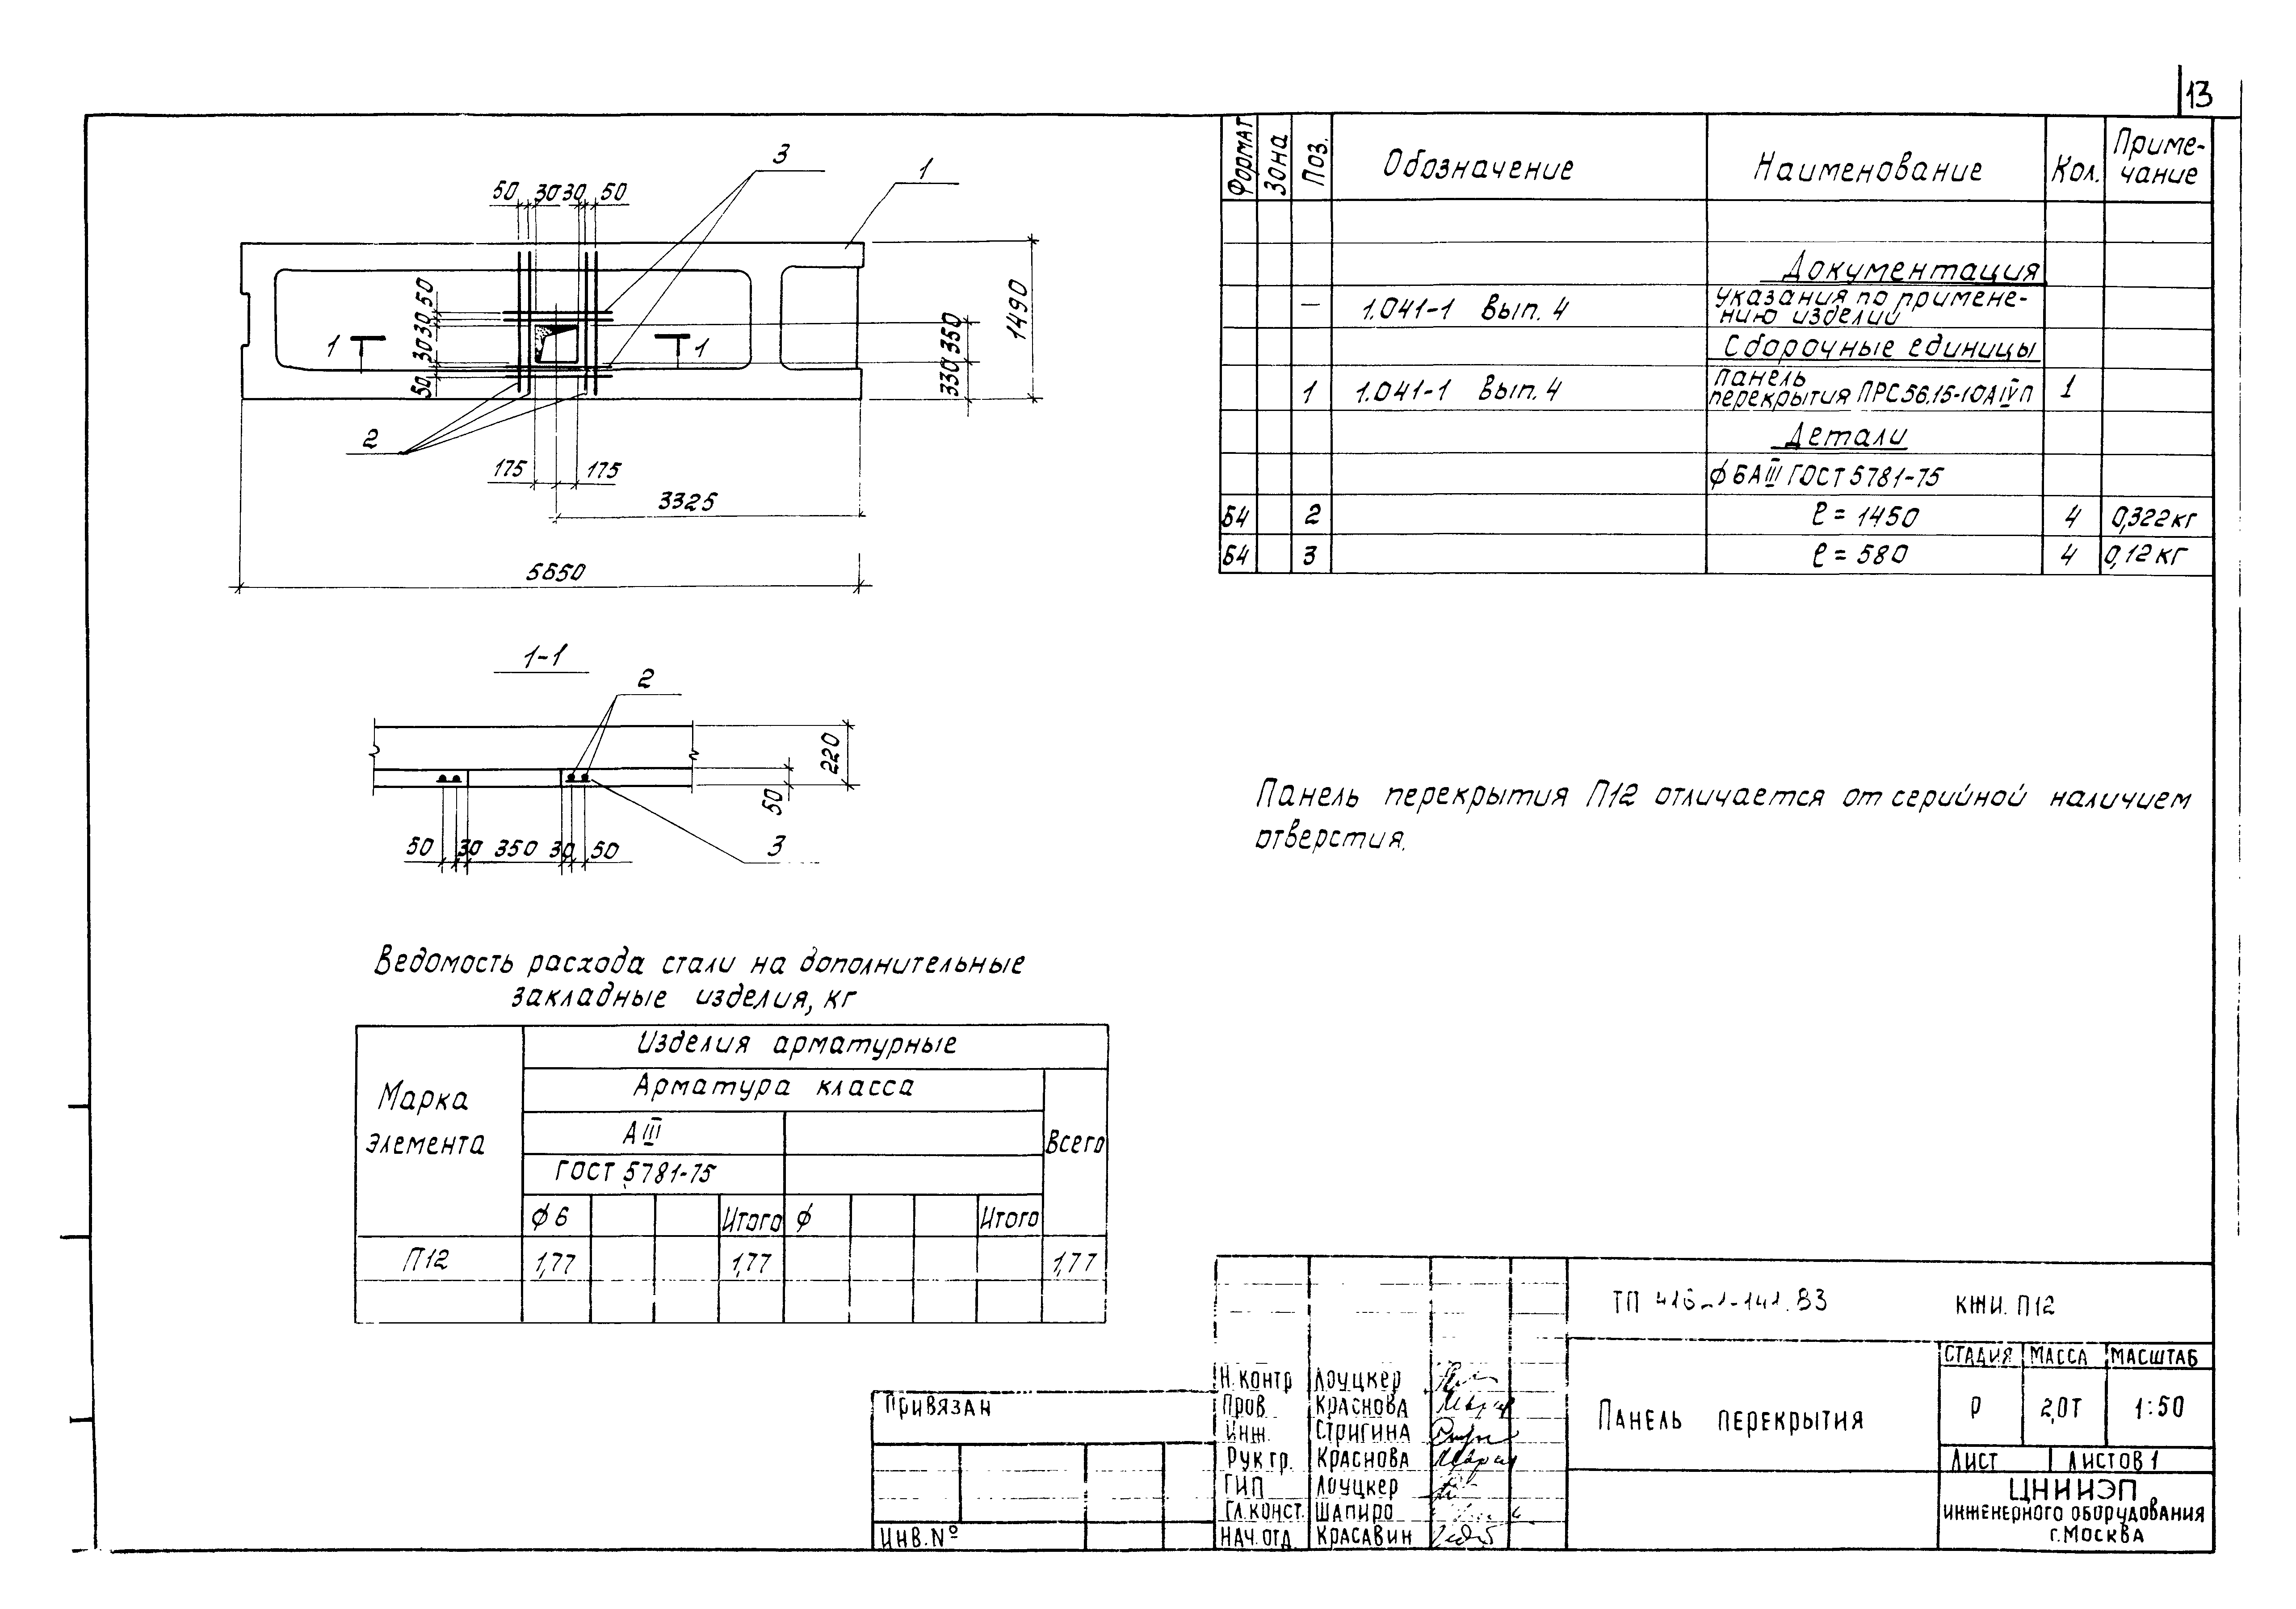 13
Формат Зона Поз. Обозначение Наименование Кол. Приме-
чание
Документация
— 1.041-1 Вып. 4 Указания по примене-
нию изделий
Сборочные единицы
1 1.041-1 Вып. 4 Панель
перекрытия ПРС56.15-10АIVП 1
Детали
ф6АIII ГОСТ 5781-75
Б4 2 ℓ = 1450 4 0,322кг
Б4 3 ℓ = 580 4 0,12кг
3
1
50 30 30 50
50
30
30
50
1 1
1490
350
330
2
175 175
3325
5650
1-1
2
220
50
50 30 350 30 50
3
Панель перекрытия П12 отличается от серийной наличием
отверстия.
Ведомость расхода стали на дополнительные
закладные изделия, кг
Марка
элемента
Изделия арматурные
Арматура класса
Всего
АIII
ГОСТ 5781-75
ф6 Итого ф Итого
П12 1,77 1,77 1,77
ТП 416-1-141.83 КЖИ. П12
СТАДИЯ МАССА МАСШТАБ
Р 2,0Т 1:50
Панель перекрытия
Лист Листов 1
ЦНИИЭП
инженерного оборудования
г. Москва
Привязан
Инв. №
Н.контр Лоуцкер
Пров. Краснова
Инж. Стригина
Рук гр. Краснова
ГИП Лоуцкер
Гл.конст. Шапиро
Нач.отд Красавин